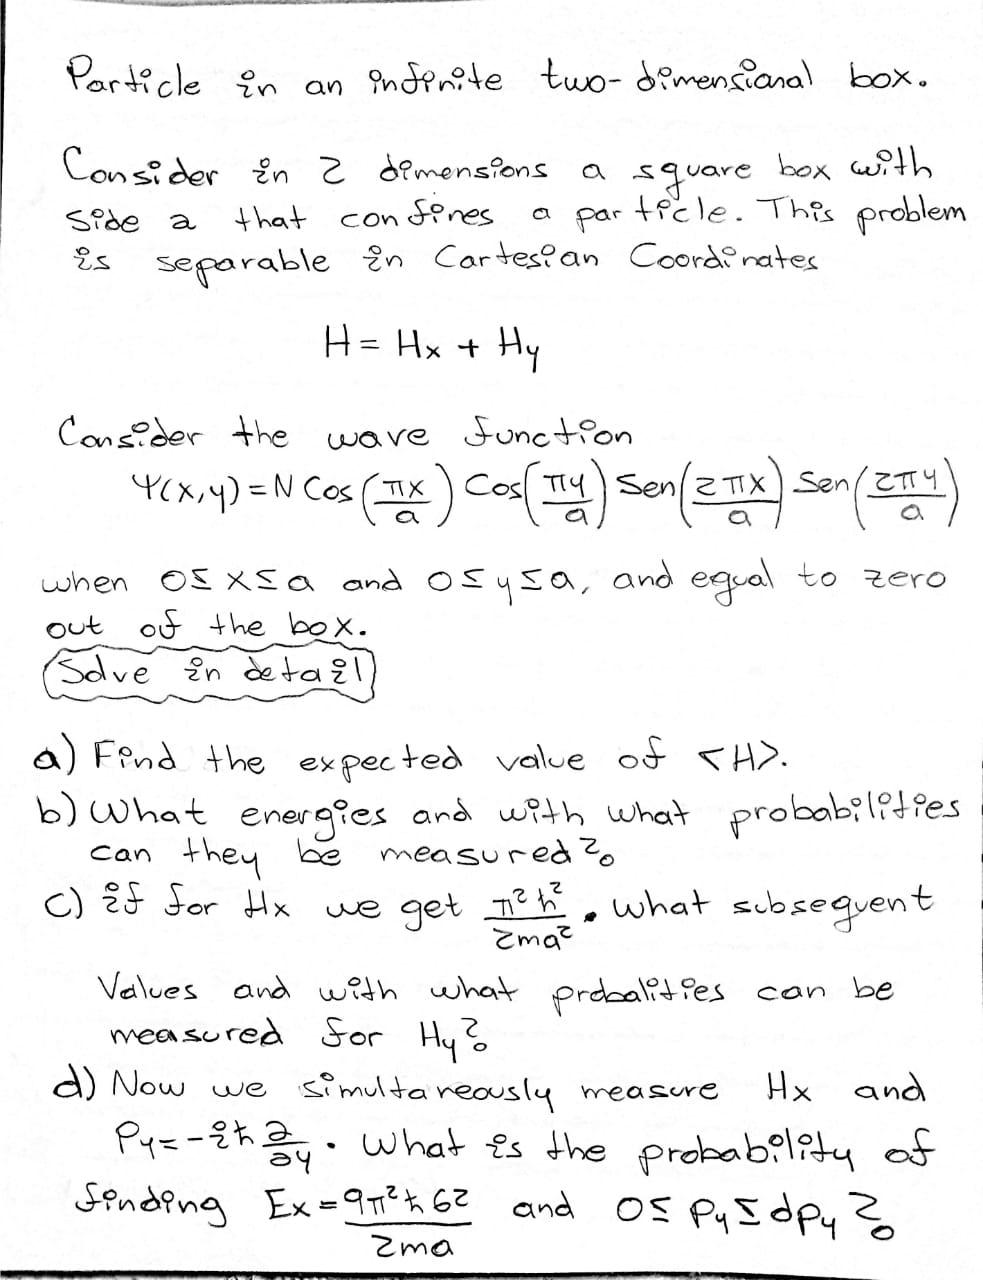 Particle in an infinite two-dimensional box.
Consider in 2 dimensions a square box with
side a that confines a particle. This problem
is separable in Cartesian Coordinates
H = Hx + Hy
Consider the wave function
Ψ(x,y) = N Cos(πx/a) Cos(πy/a) Sen(2πx/a) Sen(2πy/a)
when 0≤x≤a and 0≤y≤a, and equal to zero
out of the box.
Solve in detail
a) Find the expected value of <H>.
b) What energies and with what probabilities
can they be measured?
c) if for Hx we get π²ħ²/2ma². what subsequent
Values and with what probalities can be
measured for Hy?
d) Now we simultaneously measure Hx and
Py=-iħ ∂/∂y. What is the probability of
finding Ex = 9π²ħ62/2ma and 0≤Py≤dPy?